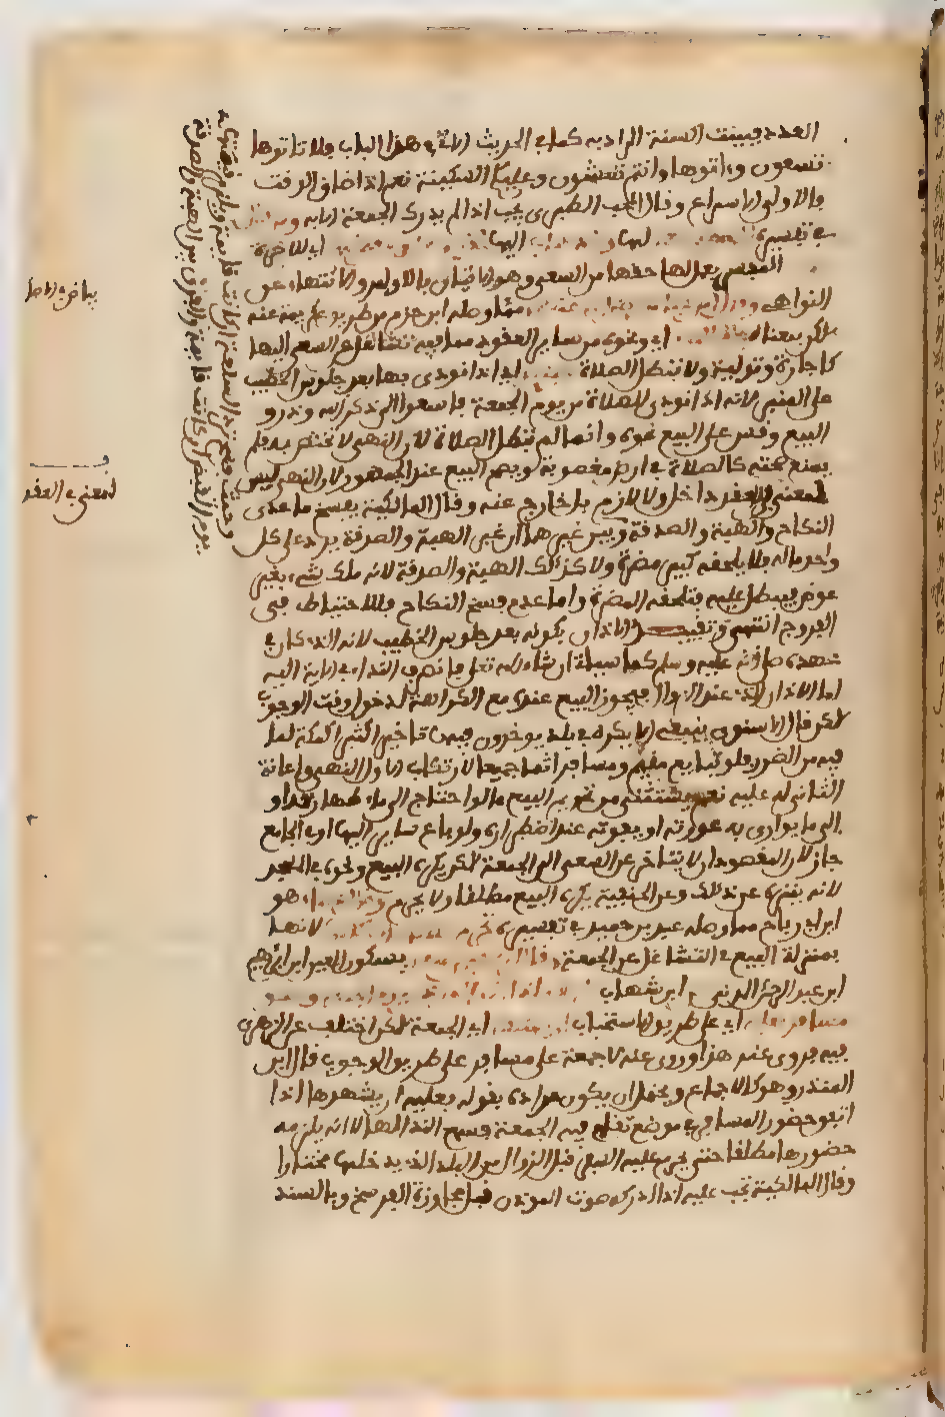 العدد فبينت السنة المراد به كما في الحديث الآتي في هذا الباب فلا تاتوها
تسعون واتوها وانتم تمشون وعليكم السكينة نعم اذا ضاق الوقت
فالاولى الاسراع وقال المحب الطبري يجب اذا لم يدرك الجمعة الا به ومن قال
في تفسيره السعي العمل لها والذهاب اليها لقوله تعالى وسعى لها سعيها اي للاخرة
المفسر بعمل لها حقها من السعي وهو الاتيان بالاوامر والانتهاء عن
النواهي وقال ابن عباس رضي الله عنهما مما وصله ابن حزم من طريق عكرمة عنه
لكن بمعناه يحرم البيع اي ونحوه من ساير العقود مما فيه تشاغل عن السعي اليها
كاجارة وتولية ولا تبطل الصلاة حينئذ اي اذا نودي بها بعد جلوس الخطيب
على المنبر لاية اذا نودي للصلاة من يوم الجمعة فاسعوا الى ذكر الله وذروا
البيع وقيس على البيع نحوه وانما لم تبطل الصلاة لان النهي لا يختص به فلم
يمنع صحته كالصلاة في ارض مغصوبة ويصح البيع عند الجمهور لان النهي ليس
لمعنى في العقد داخل ولا لازم بل خارج عنه وقال المالكية يفسخ ما عدى
النكاح والهبة والصدقة وحيث فسخ ترد السلعة ان كانت قايمة ويلزم قيمتها
يوم القبض ان كانت فايتة والفرق بين الهبة والصدقة
وبين غيرهما ان غير الهبة والصدقة يرد على كل
واحد ماله فلا يلحقه كبير مضرة ولا كذلك الهبة والصدقة لانه ملك شيء بغير
عوض فيبطل عليه فتلحقه المضرة واما عدم فسخ النكاح فللاحتياط في
الفروج انتهى وتقييد الاذان بكونه بعد جلوس الخطيب لانه الذي كان في
عهده صلى الله عليه وسلم كما سياتي ان شاء الله تعلى فانصرف النداء في الاية اليه
اما الاذان الذي عند الزوال فيجوز البيع عنده مع الكراهة لدخول وقت الوجوب
لكن قال الاسنوي ينبغي ان لا يكره في بلد يوخرون فيها تاخيرا كثيرا كمكة لما
فيه من الضرر فلو تبايع مقيم ومسافر اثما جميعا لارتكاب الاول النهي واعانة
الثاني له عليه نعم يستثنى من تحريم البيع ما لو احتاج الى ماء طهارته او
الى ما يواري به عورته او يقوته عند اضطراره ولو باع وهو ساير اليها او في الجامع
جاز لان المقصود ان لا يتاخر عن السعي الى الجمعة لكن يكره البيع ونحوه في المسجد
لانه ينزه عن ذلك وعن الحنفية يكره البيع مطلقا ولا يحرم وقال عطاء هو
ابن ابي رباح مما وصله عبد بن حميد في تفسيره تحرم الصناعات كلها لانها
بمنزلة البيع في التشاغل عن الجمعة وقال ابراهيم بن سعد بسكون العين ابن ابراهيم
ابن عبد الرحمن المدني عن ابن شهاب الزهري اذا اذن الموذن يوم الجمعة وهو
مسافر فعليه اي على طريق الاستحباب ان يشهد اي الجمعة لكن اختلف عن الزهري
فيه فروي عنه هذا وروي عنه لا جمعة على مسافر على طريق الوجوب قال ابن
المنذر وهو كالاجماع ويحتمل ان يكون مراده بقوله فعليه ان يشهدها اذا
اتفق حضور المسافر في موضع تقام فيه الجمعة فسمع النداء لها لا انه يلزمه
حضورها مطلقا حتى يحرم عليه السفر قبل الزوال من البلد الذي يدخلها مجتازا
وقال المالكية تجب عليه اذا ادركه صوت الموذن قبل مجاوزة الفرسخ وبالسند
بياض في الاصل
لمعنى في العقد